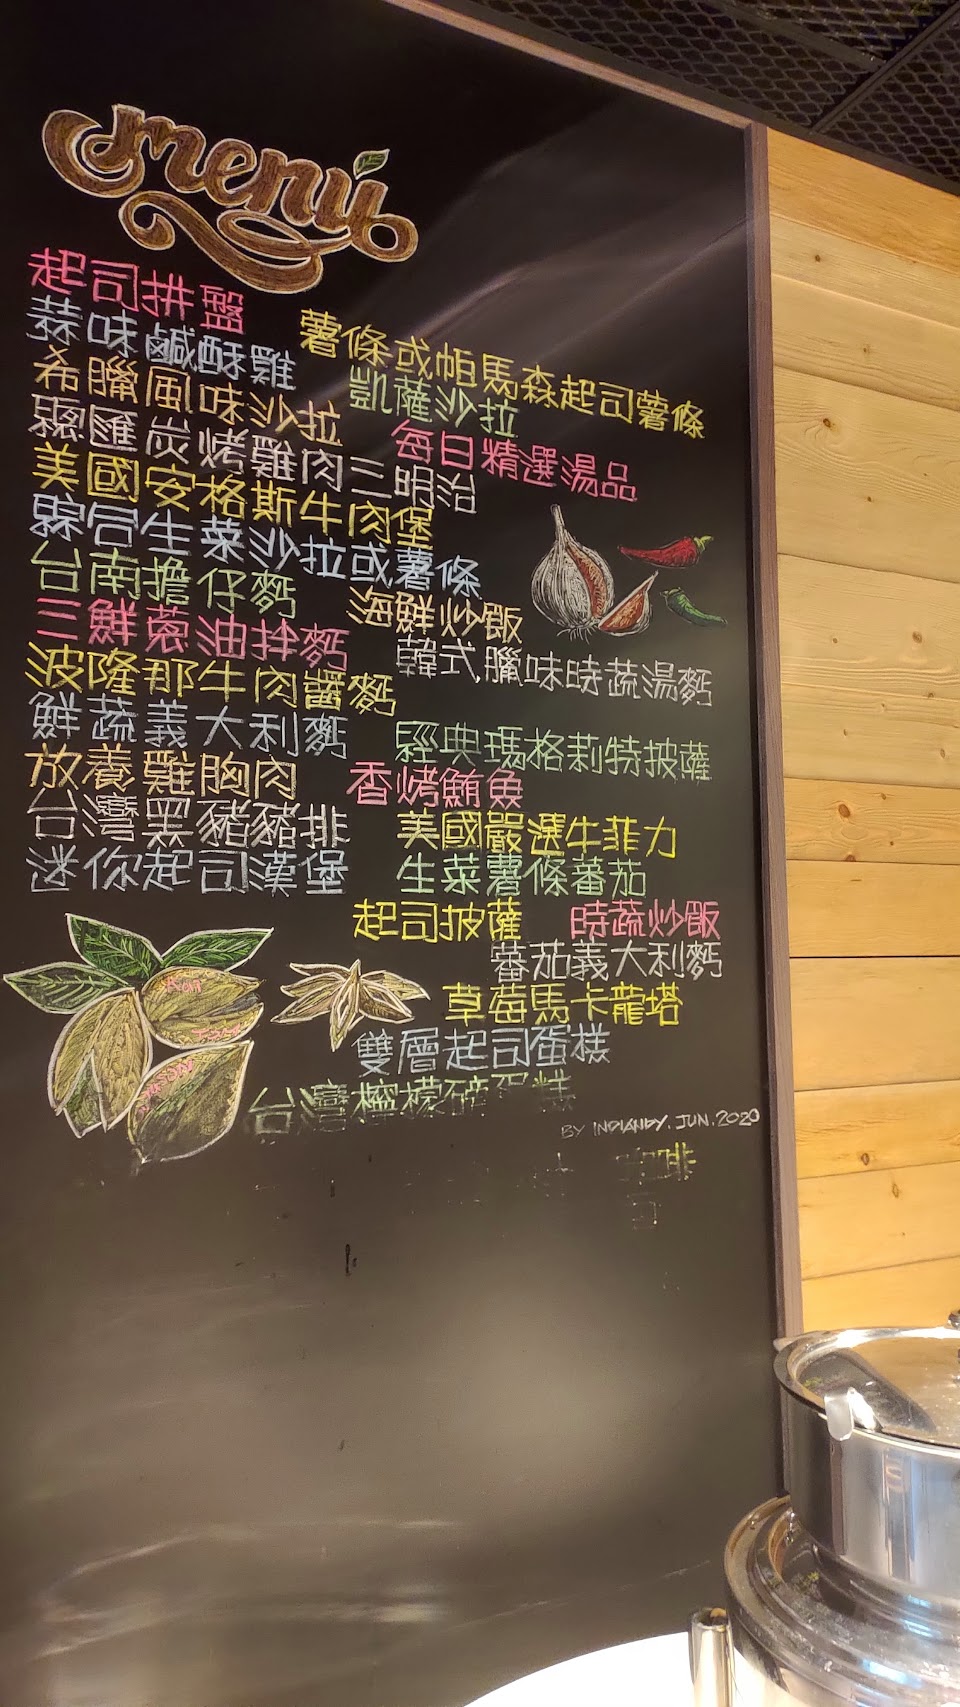 menu
起司拼盤
蒜味鹹酥雞
薯條或帕馬森起司薯條
希臘風味沙拉
凱薩沙拉
匯炭烤雞肉三明治
每日精選湯品
美國安格斯牛肉堡
綜合生菜沙拉或薯條
台南擔仔麵
海鮮炒飯
三鮮蔥油拌麵
韓式臘味時蔬湯麵
波隆那牛肉醬麵
鮮蔬義大利麵
經典瑪格莉特披薩
放養雞胸肉
香烤鮪魚
台灣黑豬豬排
美國嚴選牛菲力
迷你起司漢堡
生菜薯條蕃茄
起司披薩
時蔬炒飯
蕃茄義大利麵
草莓馬卡龍塔
雙層起司蛋糕
台灣檸檬 蛋糕
BY INDIANDY. JUN. 2020